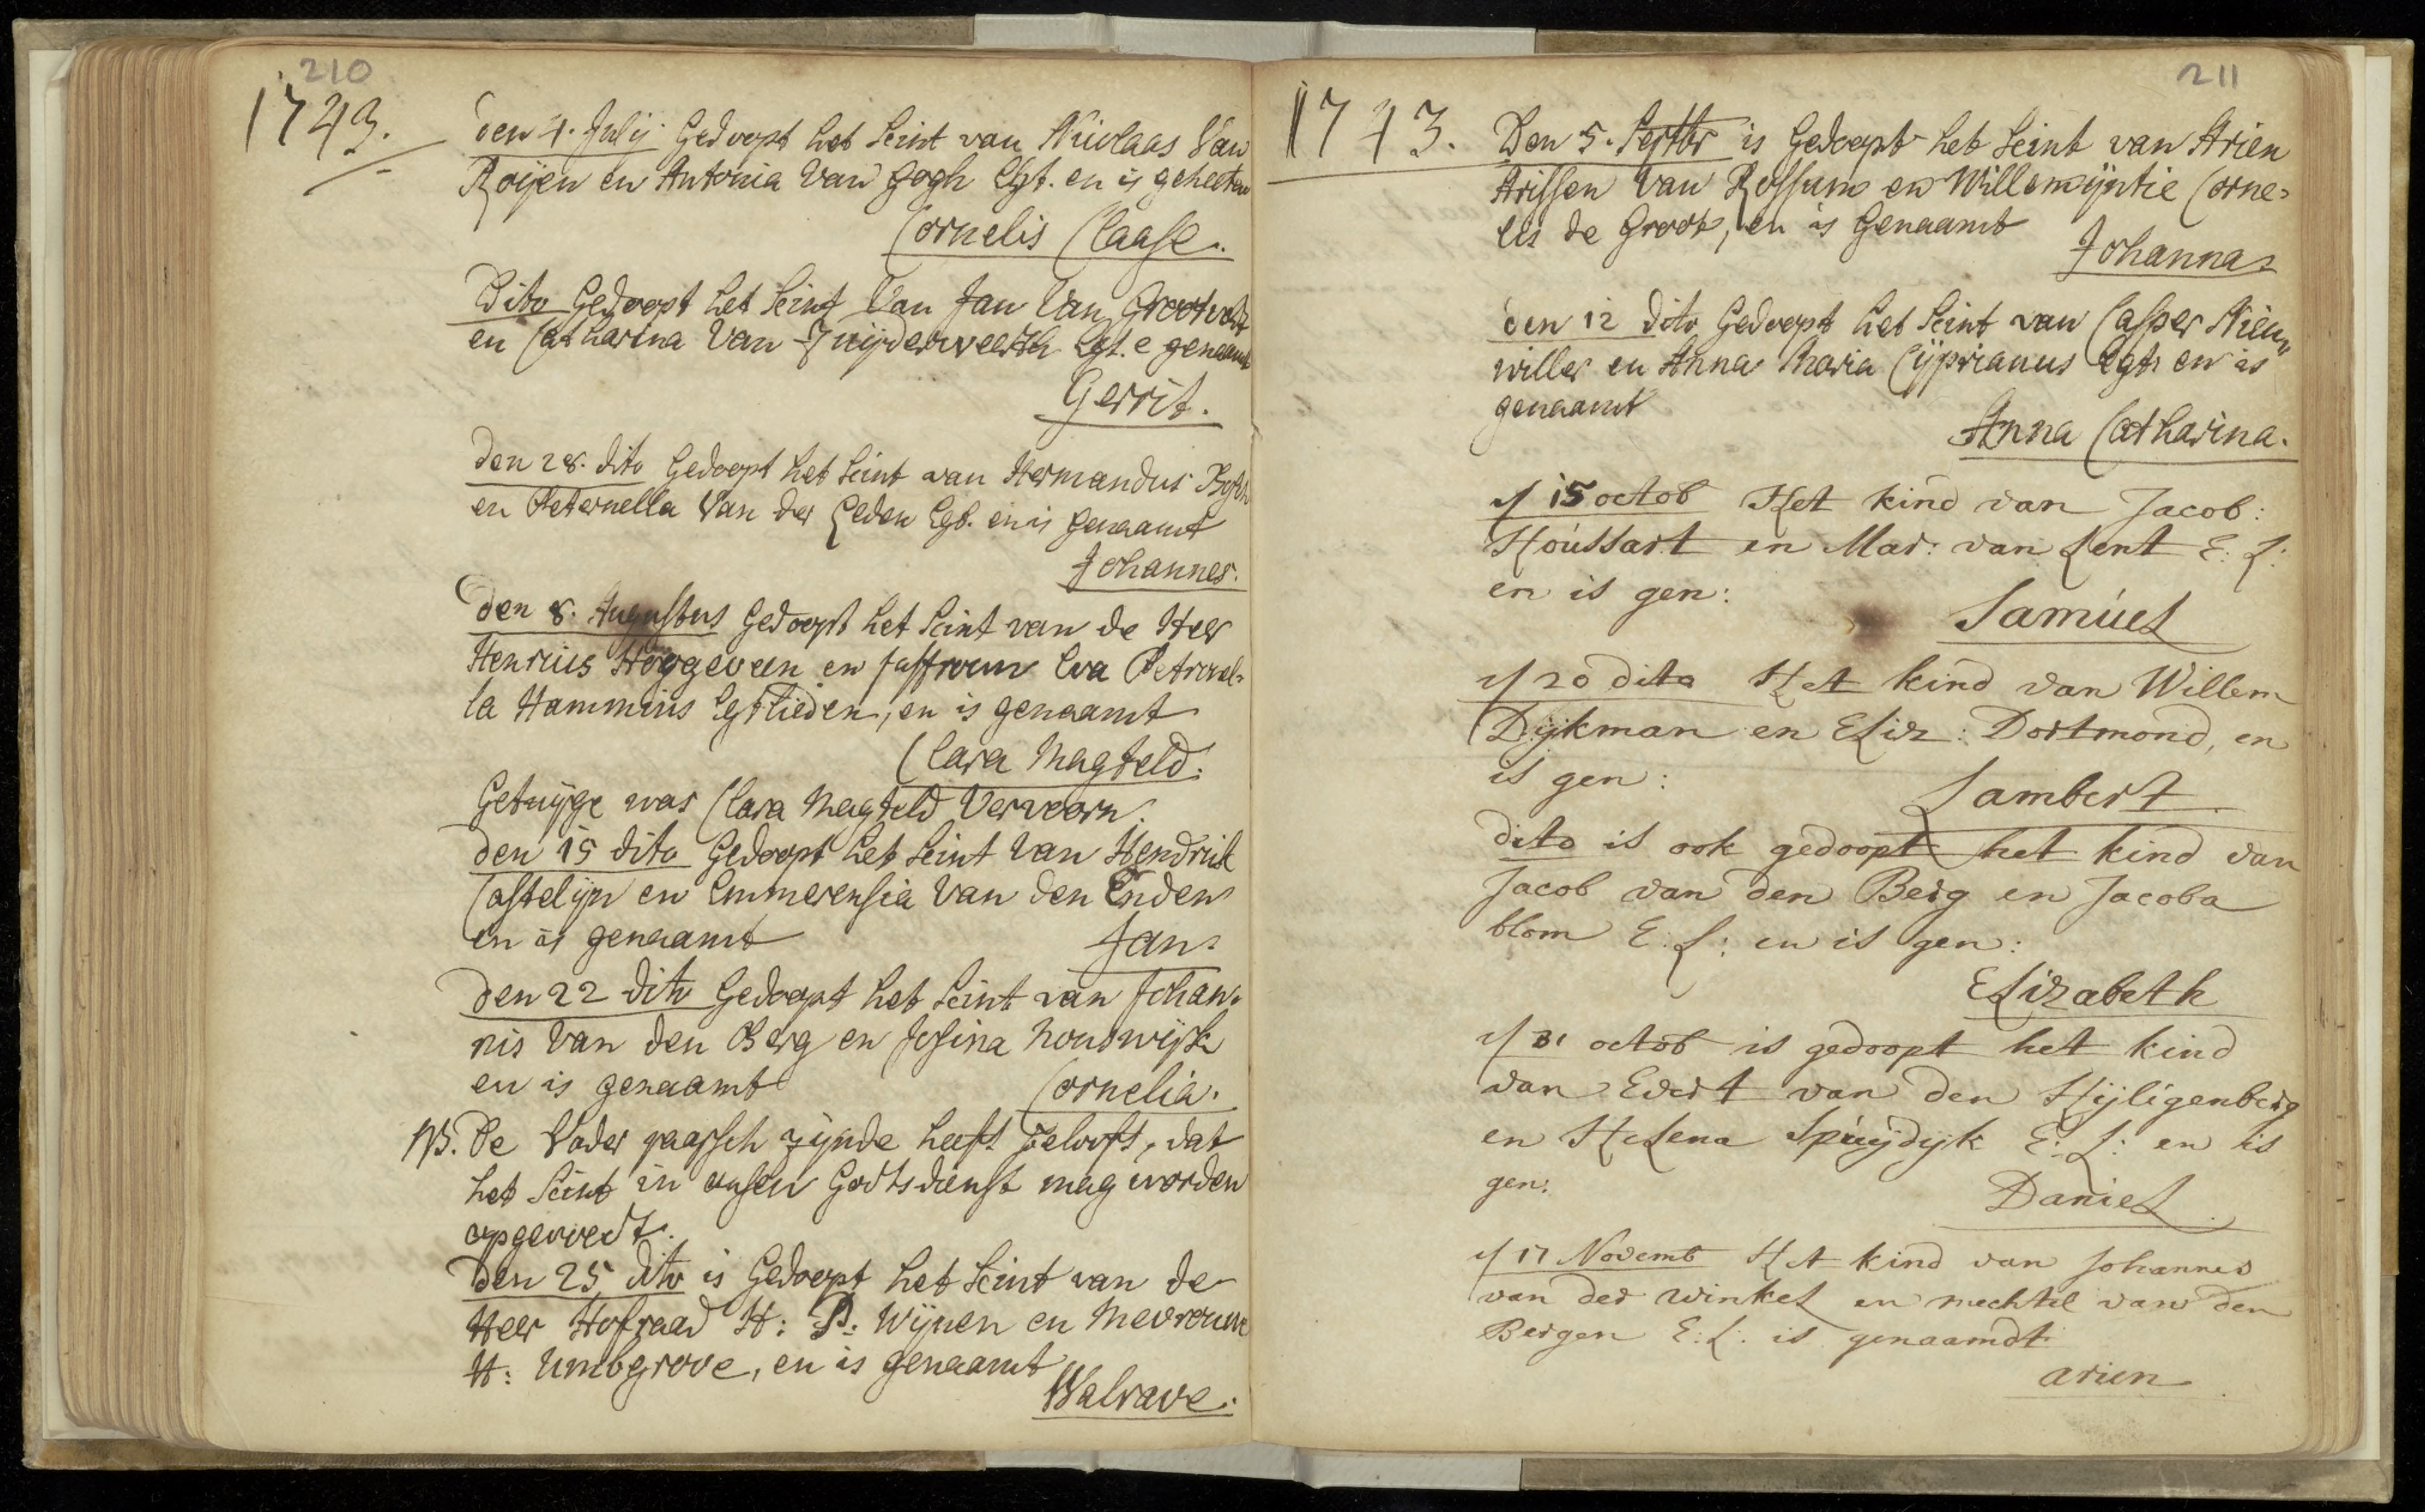 210
1743.
den 4. Julij Gedoopt het kint van Nicolaas Van
Roijen en Antonia Van Gogh Egt. en is geheeten
Cornelis Claase.
Dito Gedoopt het kint Van Jan Van Grootveld
en Catharina Van Zuijderweerth Egt. e genaamt
Gerrit.
den 28. dito Gedoopt het kint van Hermandus
en Peternella Van der Leden Egt. en is genaamt
Johannes.
den 8. Augustus Gedoopt het kint van de Heer
Henricus Hoogeveen en Juffrouw Eva Petronel=
la Hammius Egtlieden, en is genaamt
Clara Magteld.
Getuijge was Clara Magteld Vervoorn.
den 15 dito Gedoopt het kint Van Hendrik
Castelijn en Emmerensia Van den Enden
en is genaamt Jan.
den 22 dito Gedoopt het kint van Johan=
nis Van den Berg en Josina Houdwijk
en is genaamt Cornelia.
NB. De Vader paapsch zijnde heeft belooft, dat
het kint in onsen Godtsdienst mag worden
opgevoedt.
Den 25 dito is Gedoopt het kint van de
Heer Hofraad H: P. Wijnen en Mevrouwe
H: Umbgrove, en is genaamt
Walrave.
211
1743.
Den 5. Septbr is Gedoopt het kint van Arien
Arissen Van Rossum en Willemijntie Corne=
lis de Groot, en is Genaamt
Johanna
den 12 dito Gedoopt het kint van Casper Nieu
willer en Anna Maria Cijprianus Egt. en is
genaamt
Anna Catharina.
d 15 octob Het kind van Jacob:
Houssart en Mar: van Lent E: L:
en is gen:
Samuel
d 20 dito Het kind van Willem
Dijkman en Eliz: Dortmond, en
is gen:
Lambert.
dito is ook gedoopt het kind van
Jacob van den Berg en Jacoba
blom E: L: en is gen:
Elizabeth
d 31 octob is gedoopt het kind
van Evert van den Hijligenberg
en Helena Spuijdijk E: L: en is
gen:
Daniel.
d 17 Novemb Het kind van Johannes
van der winkel en mechtel van den
Bergen E: L: is genaamdt
arien